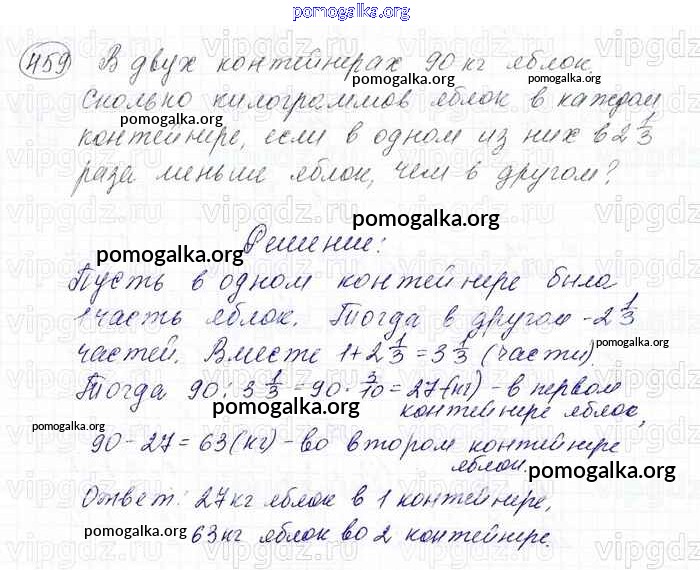 pomogalka.org
459 В двух контейнерах 90 кг яблок.
pomogalka.org pomogalka.org
Сколько килограммов яблок в каждом
pomogalka.org
контейнере, если в одном из них в 2 1/3
раза меньше яблок, чем в другом?
pomogalka.org
Решение:
pomogalka.org
Пусть в одном контейнере была
1 часть яблок. Тогда в другом - 2 1/3
pomogalka.org
частей. Вместе 1 + 2 1/3 = 3 1/3 (части).
Тогда 90 : 3 1/3 = 90 · 3/10 = 27 (кг) - в первом
pomogalka.org контейнере яблок,
pomogalka.org
90 - 27 = 63 (кг) - во втором контейнере
яблок. pomogalka.org
Ответ: 27 кг яблок в 1 контейнере,
pomogalka.org 63 кг яблок во 2 контейнере.